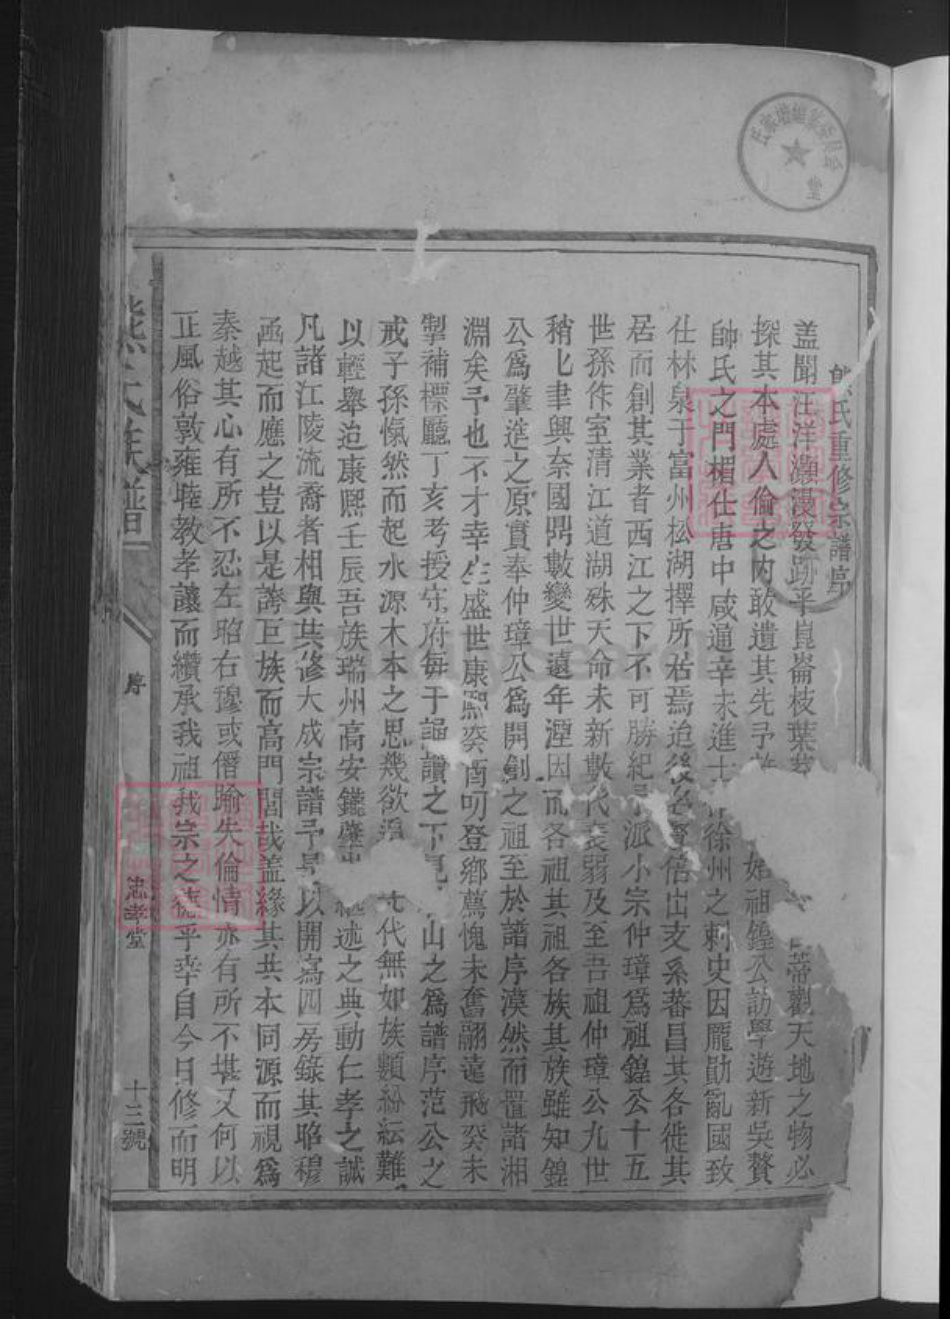 熊氏重修宗譜序
盖聞汪洋灝漫發跡乎崑崙枝葉 蒂觀天地之物必
探其本處人倫之內敢遺其先予 始祖鍠公訪學遊新吳贅
帥氏之門楣仕唐中咸通辛未進士 徐州之刺史因龐勛亂國致
仕林泉于富州松湖擇所居焉迨後 倍出支系蕃昌其各徙其
居而創其業者西江之下不可勝紀 派小宗仲璋爲祖鍠公十五
世孫作室清江道湖殊天命未新數代衰弱及至吾祖仲璋公九世
稍七聿興奈國鼎數變世遠年湮因而各祖其祖各族其族雖知鍠
公爲肇造之原實奉仲璋公爲開創之祖至於譜序漠然而置諸湘
淵矣予也不才幸生盛世康熙 叨登鄉薦愧未奮翮遠飛癸未
掣補標廳丁亥考授守府每于謳讀之下見 山之爲譜序范公之
戒子孫愾然而起水源木本之思幾欲 代無如族類紛紜難
以輕舉迨康熙壬辰吾族瑞州高安 述之典動仁孝之誠
凡諸江陵流裔者相與共修大成宗譜予 以開寫四房錄其昭穆
函起而應之豈以是誇巨族而高門閭哉盖緣其共本同源而視爲
秦越其心有所不忍左昭右穆或僭踰失倫情亦有所不堪又何以
正風俗敦雍睦教孝讓而纘承我祖我宗之德乎幸自今日修而明
熊氏族譜
序
忠孝堂
十三號